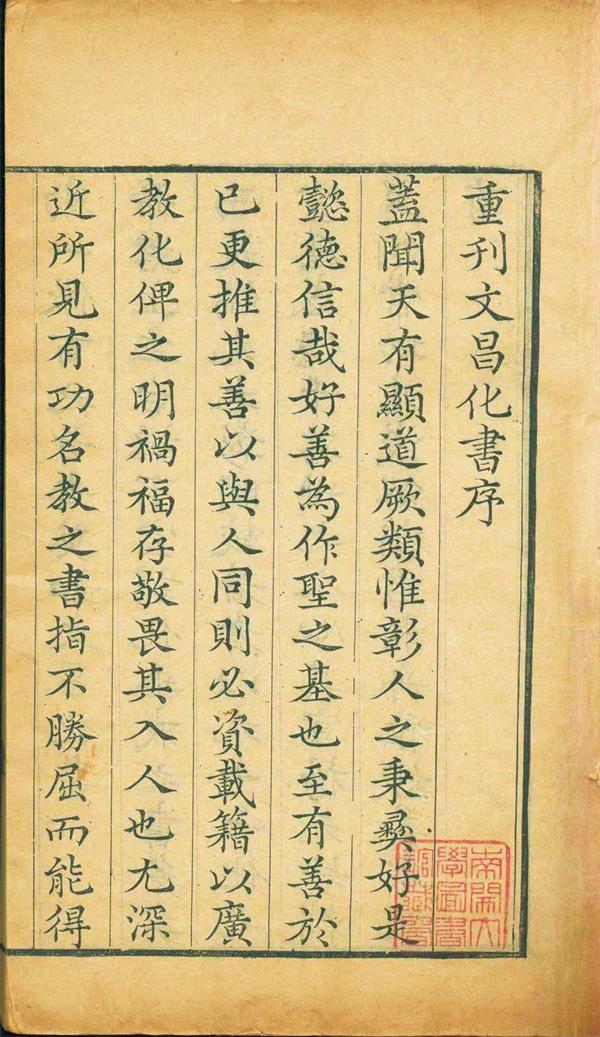 重刊文昌化書序
蓋聞天有顯道厥類惟彰人之秉彝好是
懿德信哉好善為作聖之基也至有善於
已更推其善以與人同則必資載籍以廣
教化俾之明禍福存敬畏其入人也尤深
近所見有功名教之書指不勝屈而能得
南開大
學圖書
館藏書